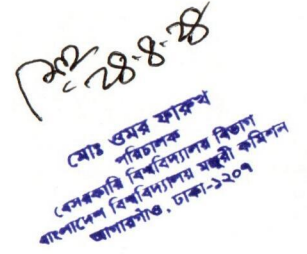 ২৪.৪.২৪
মোঃ ওমর ফারুখ
পরিচালক
বেসরকারি বিশ্ববিদ্যালয় বিভাগ
বাংলাদেশ বিশ্ববিদ্যালয় মঞ্জুরী কমিশন
আগারগাঁও, ঢাকা-১২০৭